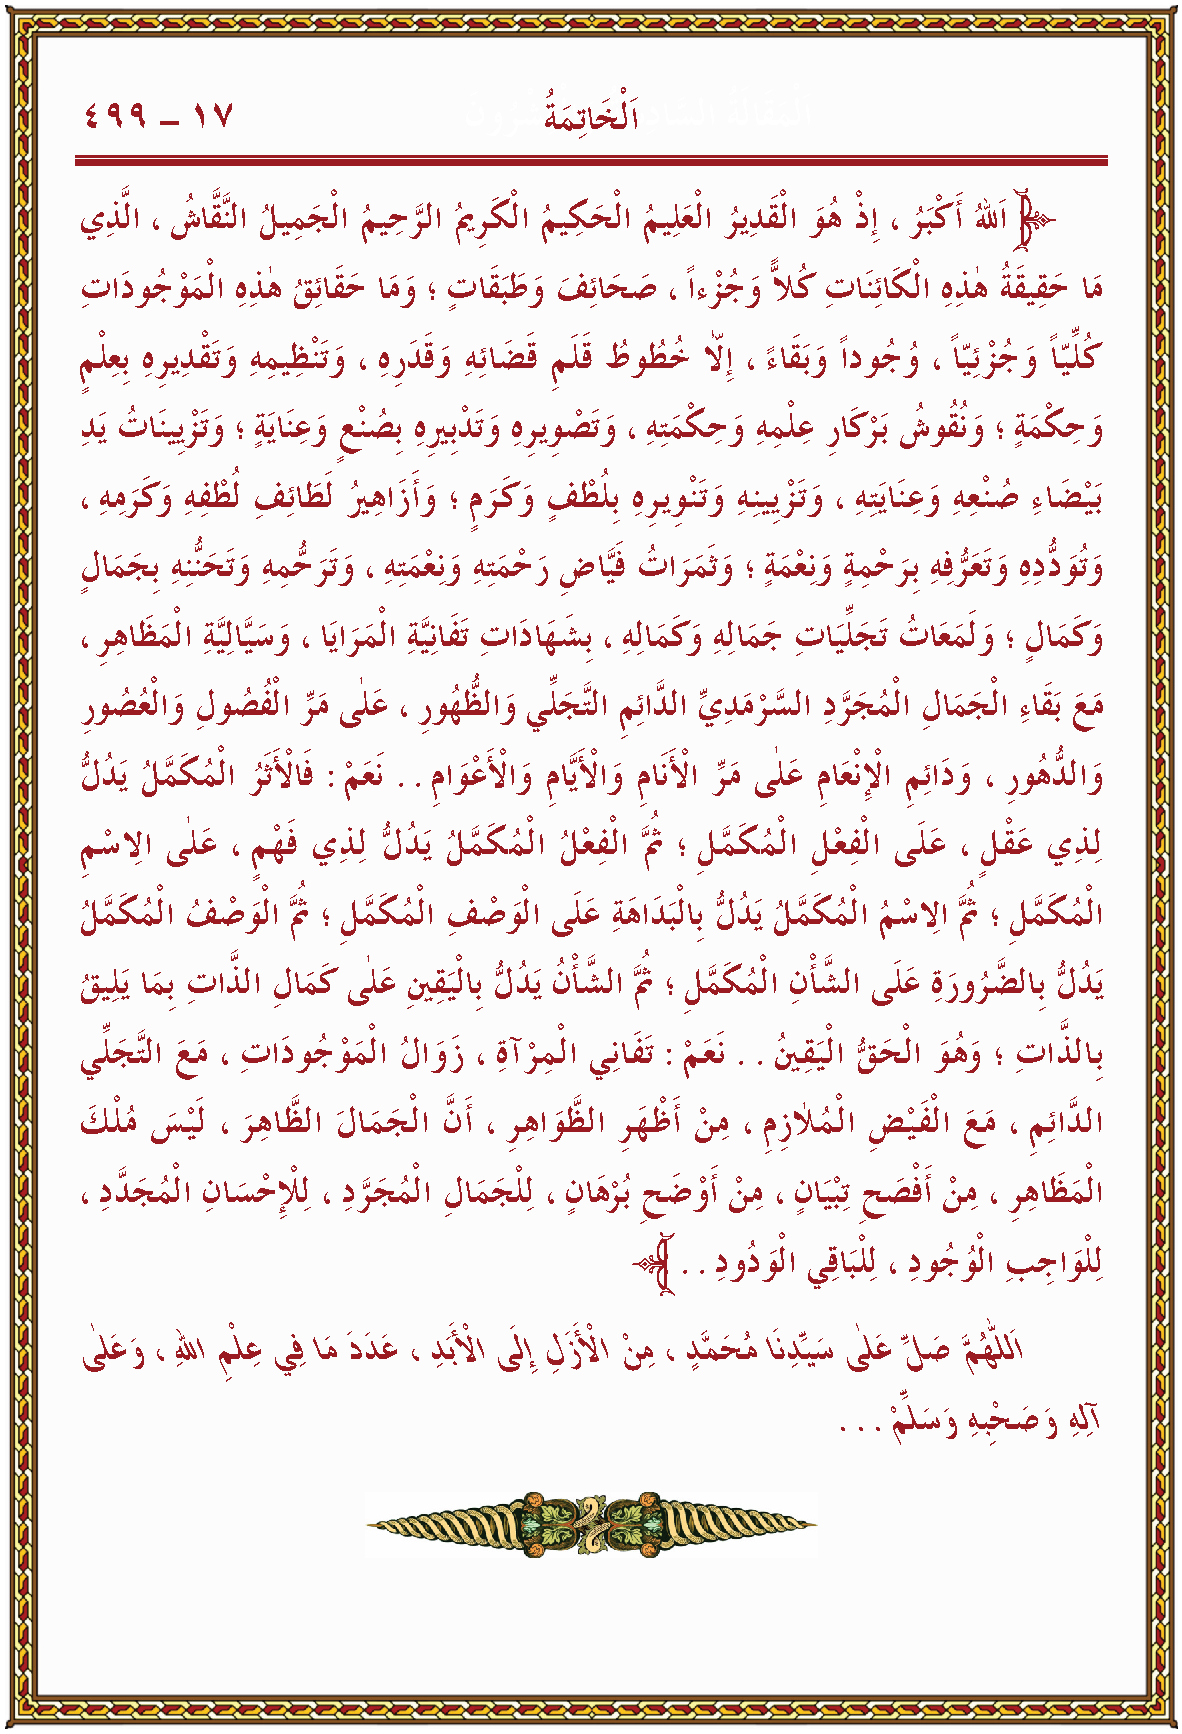 اَلْخَاتِمَةُ ١٧ – ٤٩٩
اَللّٰهُ أَكْبَرُ ، إِذْ هُوَ الْقَدِيرُ الْعَلِيمُ الْحَكِيمُ الْكَرِيمُ الرَّحِيمُ الْجَمِيلُ النَّقَّاشُ ، الَّذِي
مَا حَقِيقَةُ هٰذِهِ الْكَائِنَاتِ كُلًّا وَجُزْءاً ، صَحَائِفَ وَطَبَقَاتٍ ؛ وَمَا حَقَائِقُ هٰذِهِ الْمَوْجُودَاتِ
كُلِّيّاً وَجُزْئِيّاً ، وُجُوداً وَبَقَاءً ، إِلَّا خُطُوطُ قَلَمِ قَضَائِهِ وَقَدَرِهِ ، وَتَنْظِيمِهِ وَتَقْدِيرِهِ بِعِلْمٍ
وَحِكْمَةٍ ؛ وَنُقُوشُ بَرْكَارِ عِلْمِهِ وَحِكْمَتِهِ ، وَتَصْوِيرِهِ وَتَدْبِيرِهِ بِصُنْعٍ وَعِنَايَةٍ ؛ وَتَزْيِينَاتُ يَدِ
بَيْضَاءِ صُنْعِهِ وَعِنَايَتِهِ ، وَتَزْيِينِهِ وَتَنْوِيرِهِ بِلُطْفٍ وَكَرَمٍ ؛ وَأَزَاهِيرُ لَطَائِفِ لُطْفِهِ وَكَرَمِهِ ،
وَتُوَدُّدِهِ وَتَعَرُّفِهِ بِرَحْمِةٍ وَنِعْمَةٍ ؛ وَثَمَرَاتُ فَيَّاضِ رَحْمَتِهِ وَنِعْمَتِهِ ، وَتَرَحُّمِهِ وَتَحَنُّنِهِ بِجَمَالٍ
وَكَمَالٍ ؛ وَلَمَعَاتُ تَجَلِّيَاتِ جَمَالِهِ وَكَمَالِهِ ، بِشَهَادَاتِ تَفَانِيَّةِ الْمَرَايَا ، وَسَيَّالِيَّةِ الْمَظَاهِرِ ،
مَعَ بَقَاءِ الْجَمَالِ الْمُجَرَّدِ السَّرْمَدِيِّ الدَّائِمِ التَّجَلِّي وَالظُّهُورِ ، عَلٰى مَرِّ الْفُصُولِ وَالْعُصُورِ
وَالدُّهُورِ ، وَدَائِمِ الْإِنْعَامِ عَلٰى مَرِّ الْأَنَامِ وَالْأَيَّامِ وَالْأَعْوَامِ . . نَعَمْ : فَالْأَثَرُ الْمُكَمَّلُ يَدُلُّ
لِذِي عَقْلٍ ، عَلَى الْفِعْلِ الْمُكَمَّلِ ؛ ثُمَّ الْفِعْلُ الْمُكَمَّلُ يَدُلُّ لِذِي فَهْمٍ ، عَلٰى الِاسْمِ
الْمُكَمَّلِ ؛ ثُمَّ الِاسْمُ الْمُكَمَّلُ يَدُلُّ بِالْبَدَاهَةِ عَلَى الْوَصْفِ الْمُكَمَّلِ ؛ ثُمَّ الْوَصْفُ الْمُكَمَّلُ
يَدُلُّ بِالضَّرُورَةِ عَلَى الشَّأْنِ الْمُكَمَّلِ ؛ ثُمَّ الشَّأْنُ يَدُلُّ بِالْيَقِينِ عَلٰى كَمَالِ الذَّاتِ بِمَا يَلِيقُ
بِالذَّاتِ ؛ وَهُوَ الْحَقُّ الْيَقِينُ . . نَعَمْ : تَفَانِي الْمِرْآةِ ، زَوَالُ الْمَوْجُودَاتِ ، مَعَ التَّجَلِّي
الدَّائِمِ ، مَعَ الْفَيْضِ الْمُلَازِمِ ، مِنْ أَظْهَرِ الظَّوَاهِرِ ، أَنَّ الْجَمَالَ الظَّاهِرَ ، لَيْسَ مُلْكَ
الْمَظَاهِرِ ، مِنْ أَفْصَحِ تِبْيَانٍ ، مِنْ أَوْضَحِ بُرْهَانٍ ، لِلْجَمَالِ الْمُجَرَّدِ ، لِلْإِحْسَانِ الْمُجَدَّدِ ،
لِلْوَاجِبِ الْوُجُودِ ، لِلْبَاقِي الْوَدُودِ . .
اَللّٰهُمَّ صَلِّ عَلٰى سَيِّدِنَا مُحَمَّدٍ ، مِنْ الْأَزَلِ إِلَى الْأَبَدِ ، عَدَدَ مَا فِي عِلْمِ اللّٰهِ ، وَعَلٰى
آلِهِ وَصَحْبِهِ وَسَلِّمْ . . .